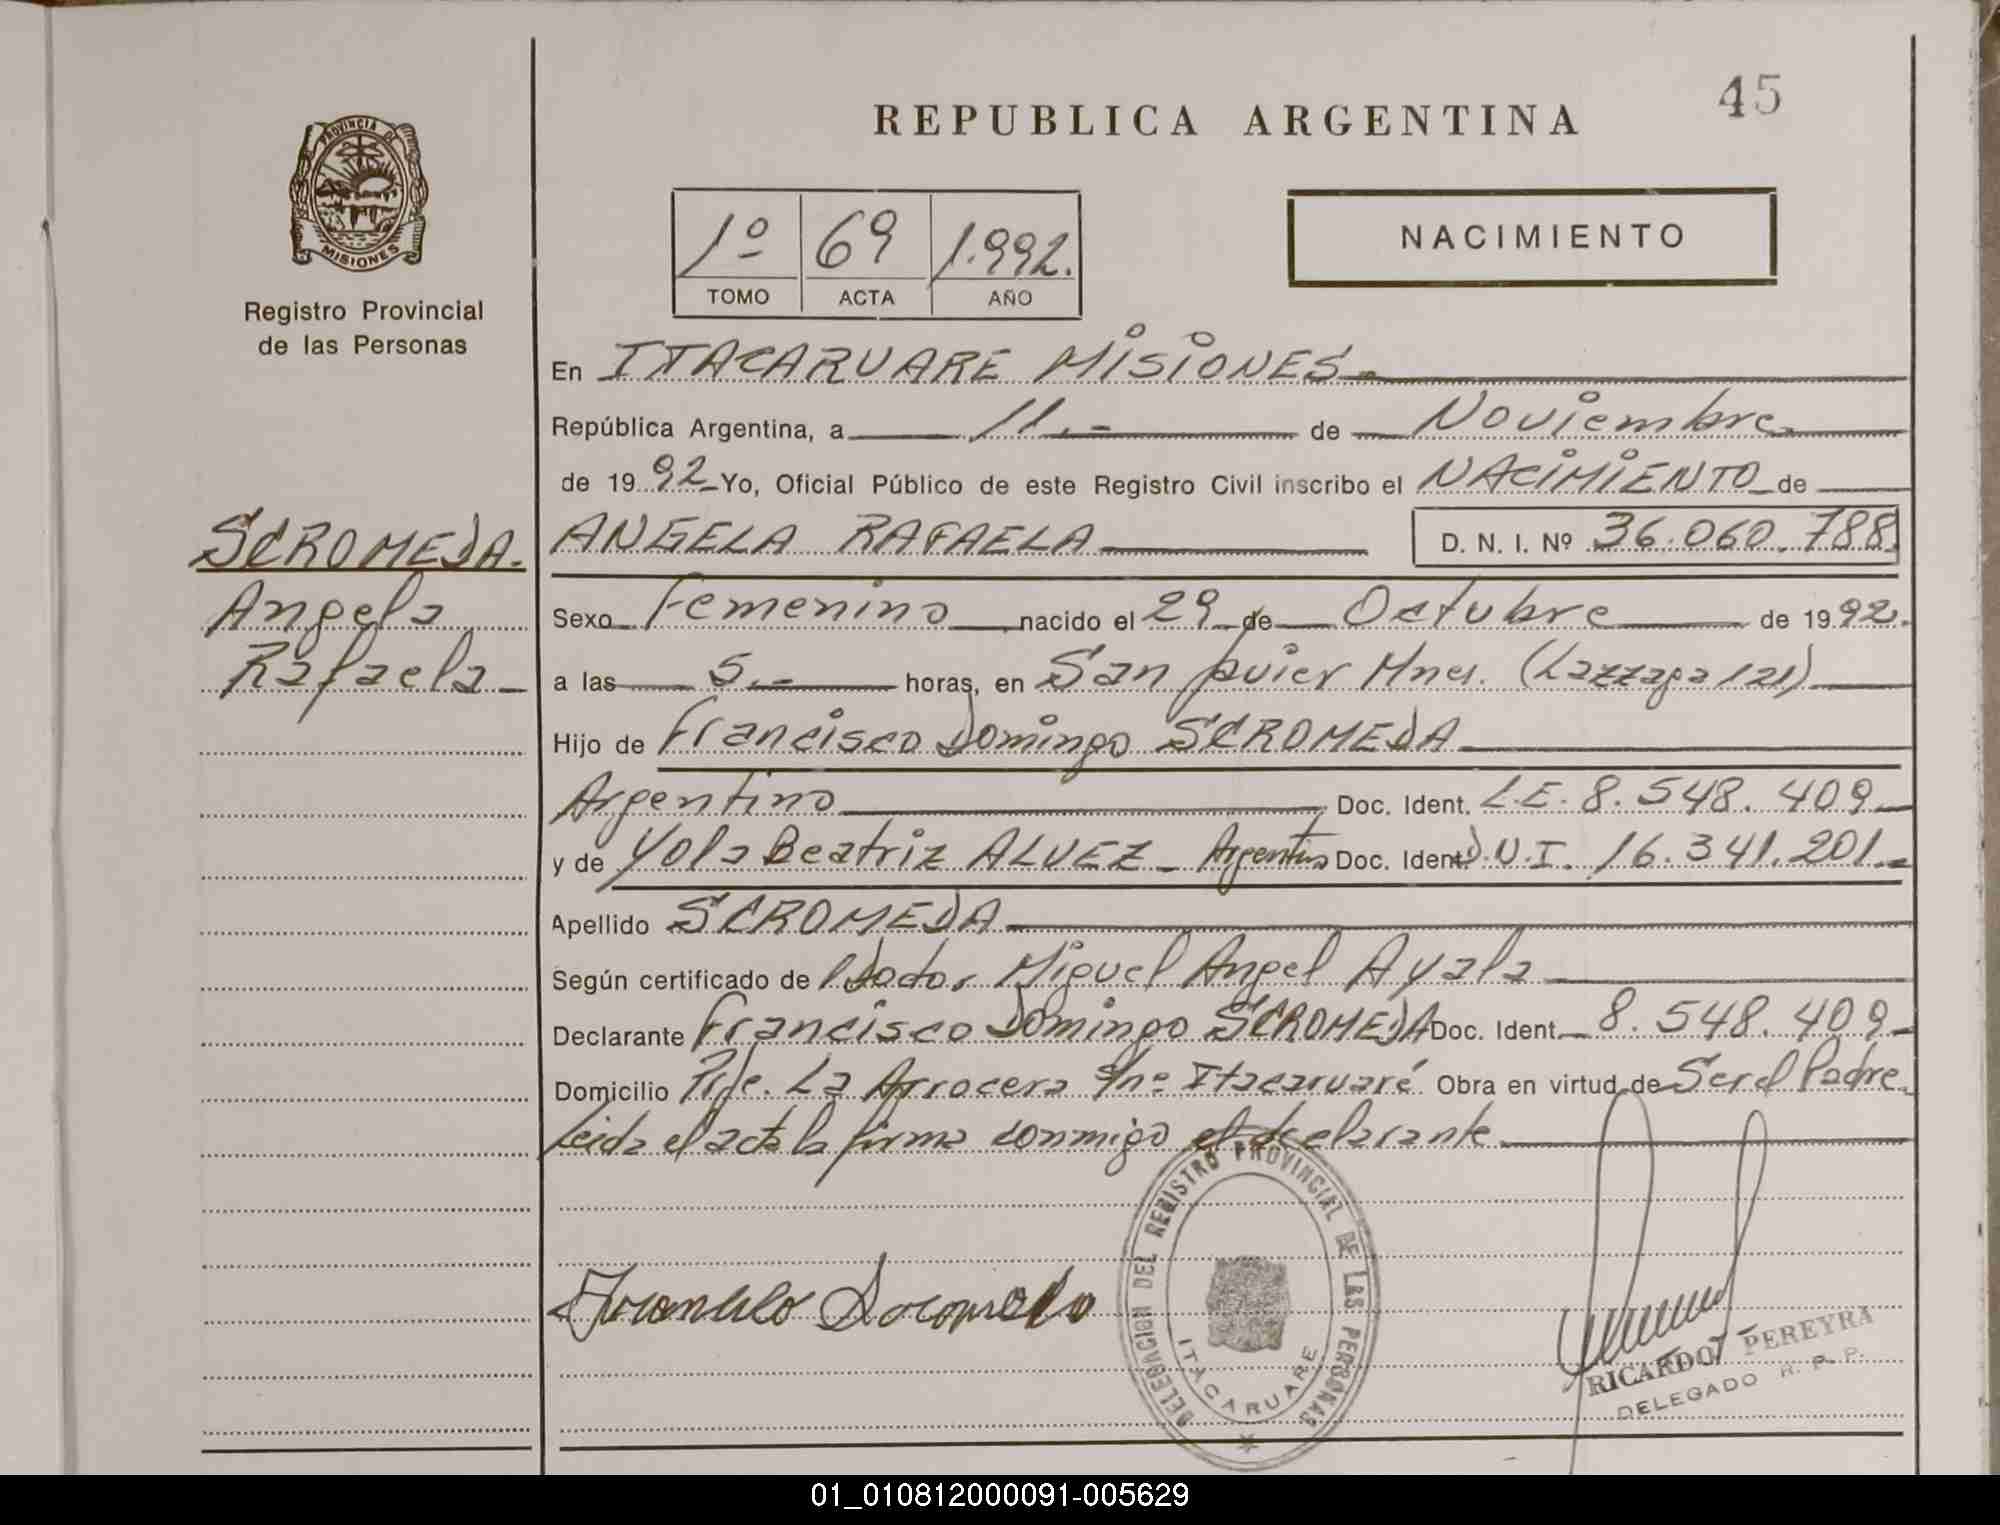 45
REPUBLICA ARGENTINA
PROVINCIA DE
MISIONES
Registro Provincial
de las Personas
1º 69 1.992.
TOMO ACTA AÑO
NACIMIENTO
En ITACARUARE MISIONES.-
República Argentina, a 11.- de Noviembre
de 1992 Yo, Oficial Público de este Registro Civil inscribo el NACIMIENTO de
SCROMEDA.
Angela
Rafaela
ANGELA RAFAELA D. N. I. Nº 36.060.788
Sexo Femenino nacido el 29 de Octubre de 1992.
a las 5.- horas, en San Javier Mnes. (Lazzaga 121)
Hijo de Francisco Domingo SCROMEDA
Argentino Doc. Ident. L.E. 8.548.409
y de Yola Beatriz ALVEZ - Argentina Doc. Ident. D.N.I. 16.341.201.-
Apellido SCROMEDA
Según certificado de Doctor Miguel Angel Ayala
Declarante Francisco Domingo SCROMEDA Doc. Ident. 8.548.409
Domicilio Pje. La Arrocera S/nº Itacaruaré Obra en virtud de Ser el Padre.
Leida el acta la firma conmigo el declarante
DELEGACION DEL REGISTRO PROVINCIAL DE LAS PERSONAS
ITACARUARE
RICARDO PEREYRA
DELEGADO R. P. P.
01_010812000091-005629